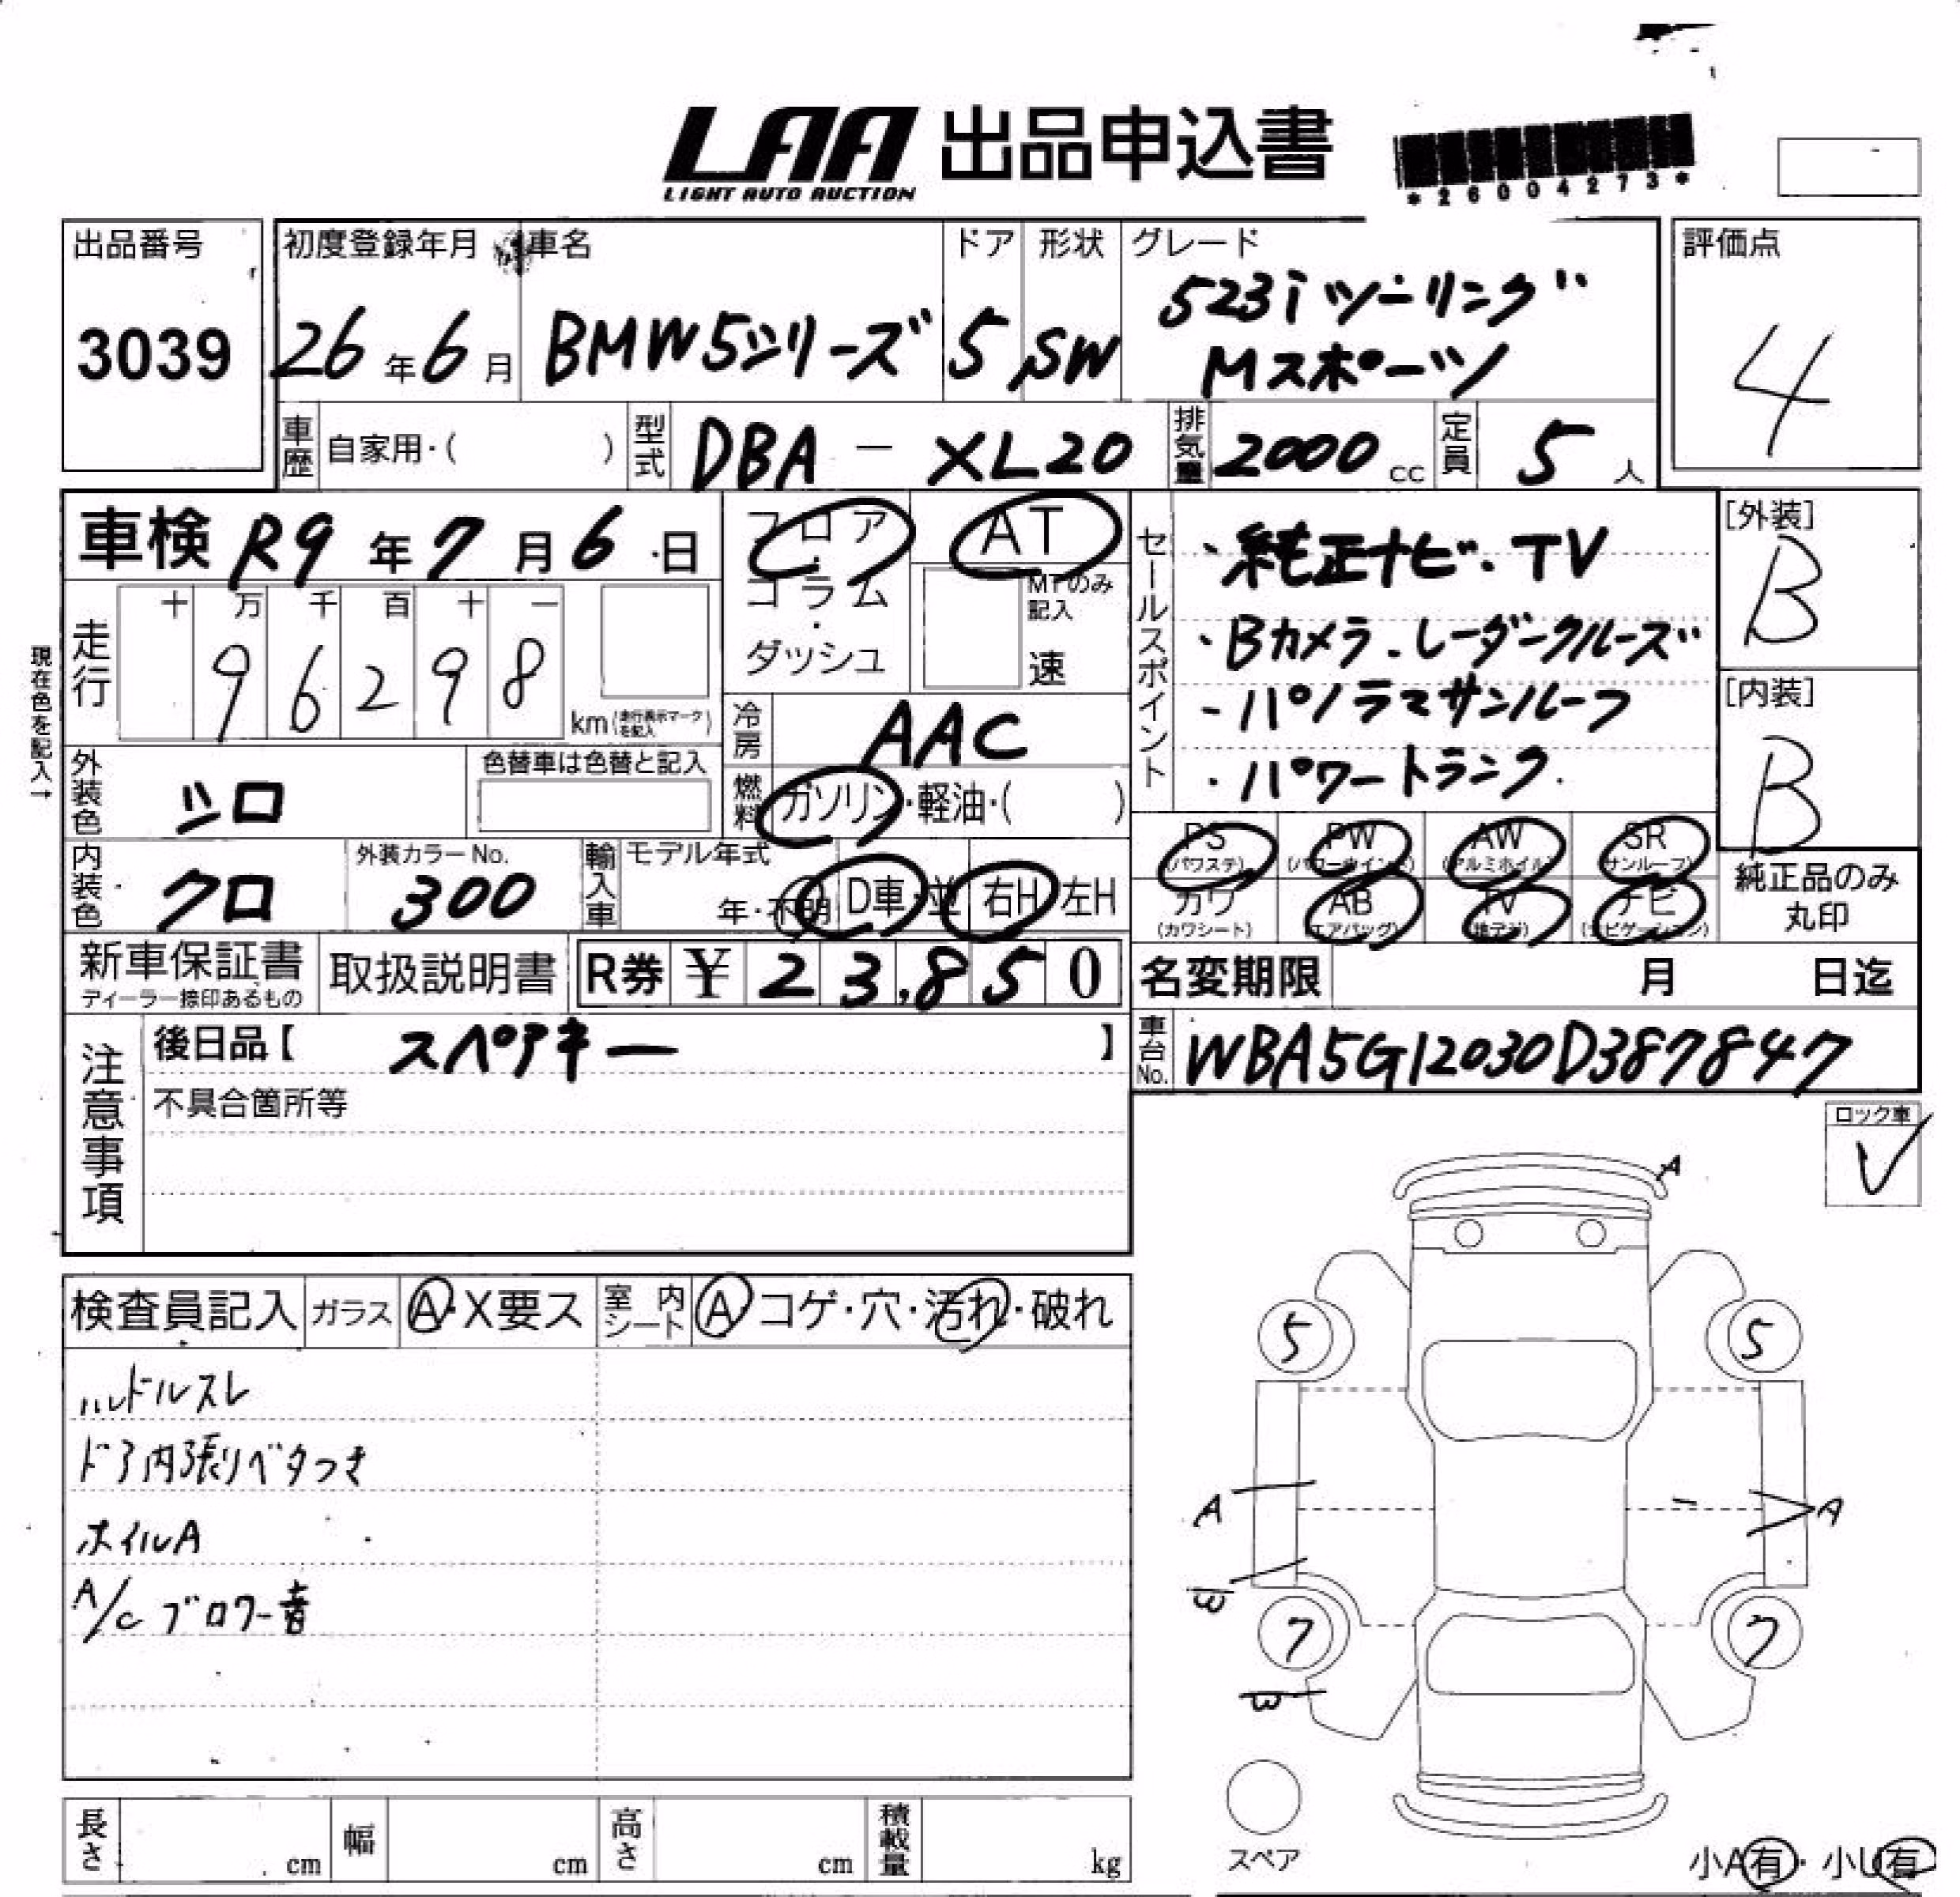 LAA 出品申込書
LIGHT AUTO AUCTION
*26004273*
出品番号
3039
初度登録年月
26年6月
車名
BMW5シリーズ
ドア
5
形状
SW
グレード
523iツーリング
Mスポーツ
評価点
4
車歴 自家用・( )
型式 DBA - XL20
排気量 2000 cc
定員 5 人
車検 R9年7月6日
フロア・コラム・ダッシュ
AT
MTのみ記入
速
現在色を記入→
走行
十 万 千 百 十 一
9 6 2 9 8
km(走行表示マークを記入)
冷房 AAC
燃料 ガソリン・軽油・( )
外装色 シロ
色替車は色替と記入
内装色 クロ
外装カラーNo.
300
輸入車
モデル年式
年・不明
D車・並
右H 左H
セールスポイント
・純正ナビ.TV
・Bカメラ.レーダークルーズ
・パノラマサンルーフ
・パワートランク.
[外装]
B
[内装]
B
PS (パワステ)
PW (パワーウインド)
AW (アルミホイル)
SR (サンルーフ)
カワ (カワシート)
AB (エアバッグ)
TV (地デジ)
ナビ (ナビゲーション)
純正品のみ
丸印
新車保証書
ディーラー捺印あるもの
取扱説明書
R券 ¥ 23,850
名変期限 月 日迄
車台No. WBA5G12030D387847
注意事項
後日品【 スペアキー 】
不具合箇所等
ロック車
検査員記入
ガラス A・X要ス
室内シート A コゲ・穴・汚れ・破れ
ハンドルスレ
ドア内張りベタつき
ホイルA
A/C ブロワー音
A
5 5
A A
7 7
スペア
小A有・小U有
長さ cm
幅 cm
高さ cm
積載量 kg